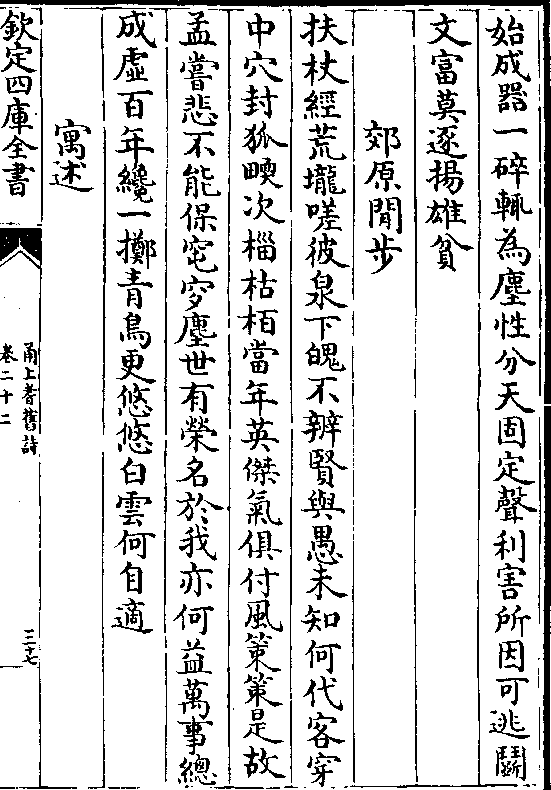 始成器一碎輒為塵性分天固定聲利害所因可逃鬭
文富莫逐揚雄貧
郊原閒步
扶杖經荒壠嗟彼泉下魄不辨賢與愚未知何代客穿
中穴封狐畷次榴枯柏當年英傑氣俱付風策策是故
孟嘗悲不能保窀穸塵世有榮名於我亦何益萬事總
成虛百年纔一擲青鳥更悠悠白雲何自適
寓述
欽定四庫全書
甬上耆舊詩
卷二十二
三七